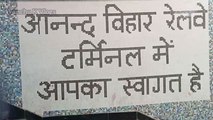 आनन्द विहार रेलवे
टर्मिनल में
आपका स्वागत है